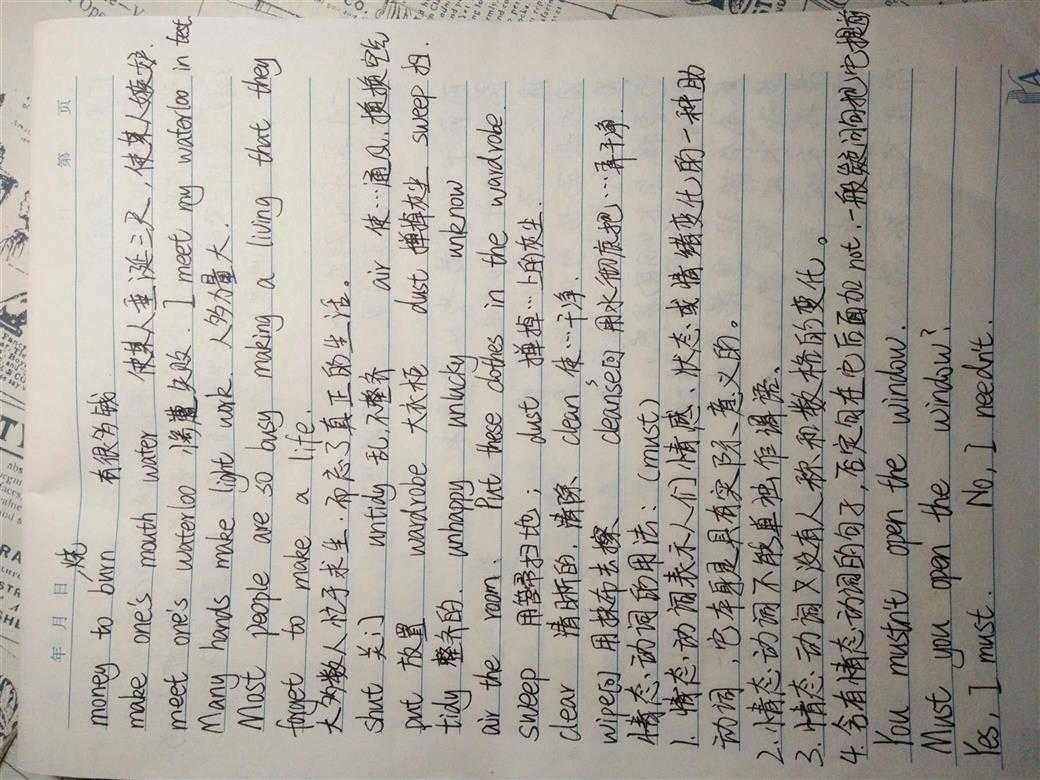 年 月 日 第 页
烧
money to burn 有很多钱
make one's mouth water 使某人垂涎三尺，使某人嫉妒.
meet one's waterloo .惨遭失败. I meet my waterloo in test
Many hands make light work. 人多力量大.
Most people are so busy making a living that they
forget to make a life.
大多数人忙于求生.而忘了真正的生活。
shut 关门 untidy 乱,不整齐 air 使…通风,换换空气
put 放置 wardrobe 大衣柜 dust 掸掉灰尘 sweep 扫.
tidy 整齐的. unhappy unlucky unknow
air the room. Put these clothes in the wardrobe.
sweep 用笤帚扫地; dust 掸掉…上的灰尘.
clear 清晰的.清除 clean 使…干净.
wipe 用抹布去擦 cleanse 用水和 把…弄干净.
情态动词的用法: (must)
1.情态动词表示人们情感、状态或情绪变化的一种助
动词,它本身是具有实际意义的。
2.情态动词不能单独作谓语.
3.情态动词又没有人称和数格的变化。
4.含有情态动词的句子,否定句在它后面加not.一般疑问句把它提前
You mustn't open the window.
Must you open the window?
Yes, I must. No, I needn't.